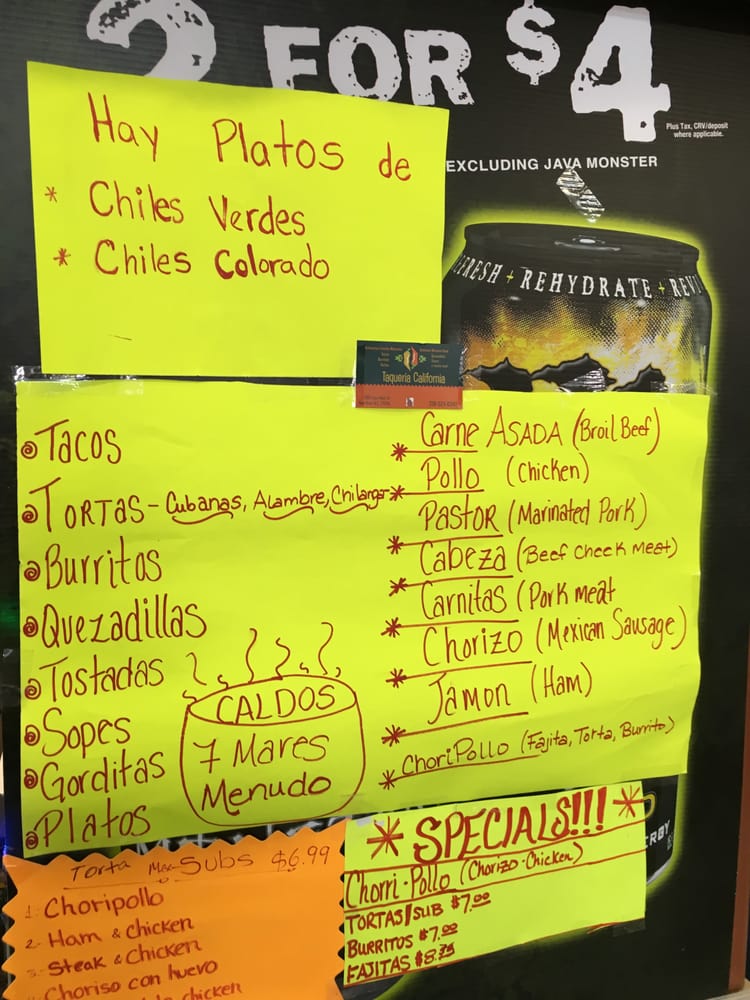 2 FOR $4
Plus Tax, CRV/deposit
where applicable.
EXCLUDING JAVA MONSTER
REHYDRATE +
Hay Platos de
* Chiles Verdes
* Chiles Colorado
Taqueria California
Tacos
TORTAS - Cubanas, Alambre, Chilanga
Burritos
Quezadillas
Tostadas
Sopes
Gorditas
Platos
CALDOS
7 Mares
Menudo
* Carne ASADA (Broil Beef)
* Pollo (Chicken)
PASTOR (Marinated Pork)
* Cabeza (Beef Cheek Meat)
* Carnitas (Pork meat
* Chorizo (Mexican Sausage)
* Jamon (Ham)
* ChoriPollo (Fajita, Torta, Burrito)
Torta Subs $6.99
1. Choripollo
2. Ham & chicken
3. Steak & Chicken
Choriso con huevo
chicken
* SPECIALS!!! *
Chorri-Pollo (Chorizo-Chicken)
TORTAS/SUB $7.00
BURRITOS $7.00
FAJITAS $8.75